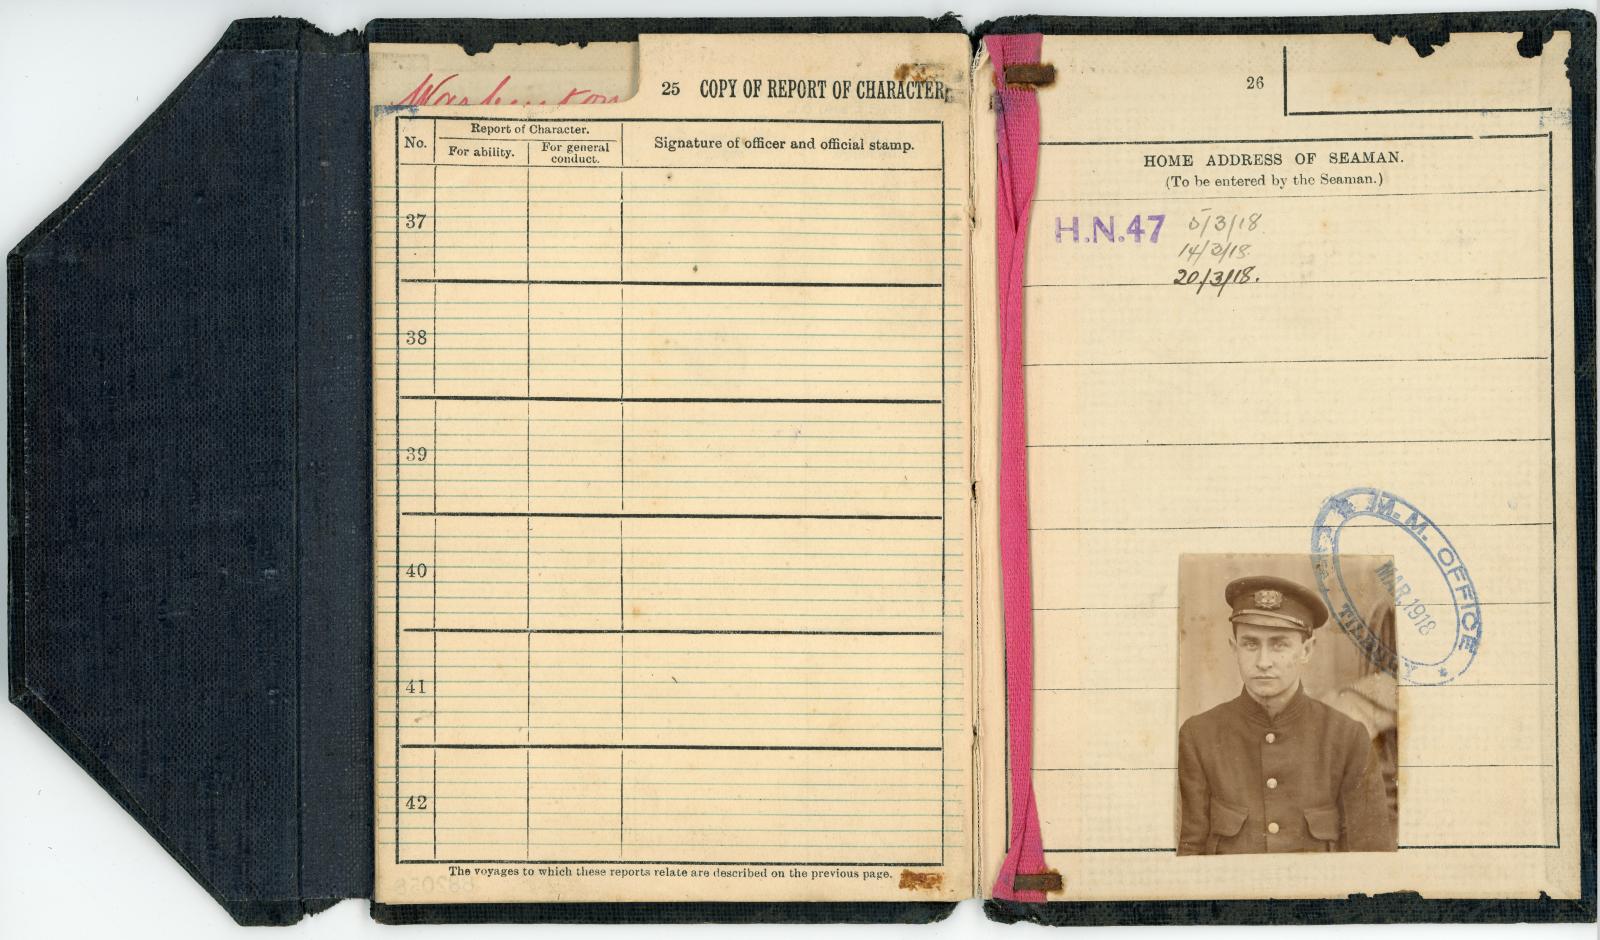 Warburton
25 COPY OF REPORT OF CHARACTER
No.
Report of Character.
For ability.
For general conduct.
Signature of officer and official stamp.
37
38
39
40
41
42
The voyages to which these reports relate are described on the previous page.
26
HOME ADDRESS OF SEAMAN.
(To be entered by the Seaman.)
H.N.47 5/3/18.
14/3/18.
20/3/18.
M.M. OFFICE
MAR. 1918
TILBURY